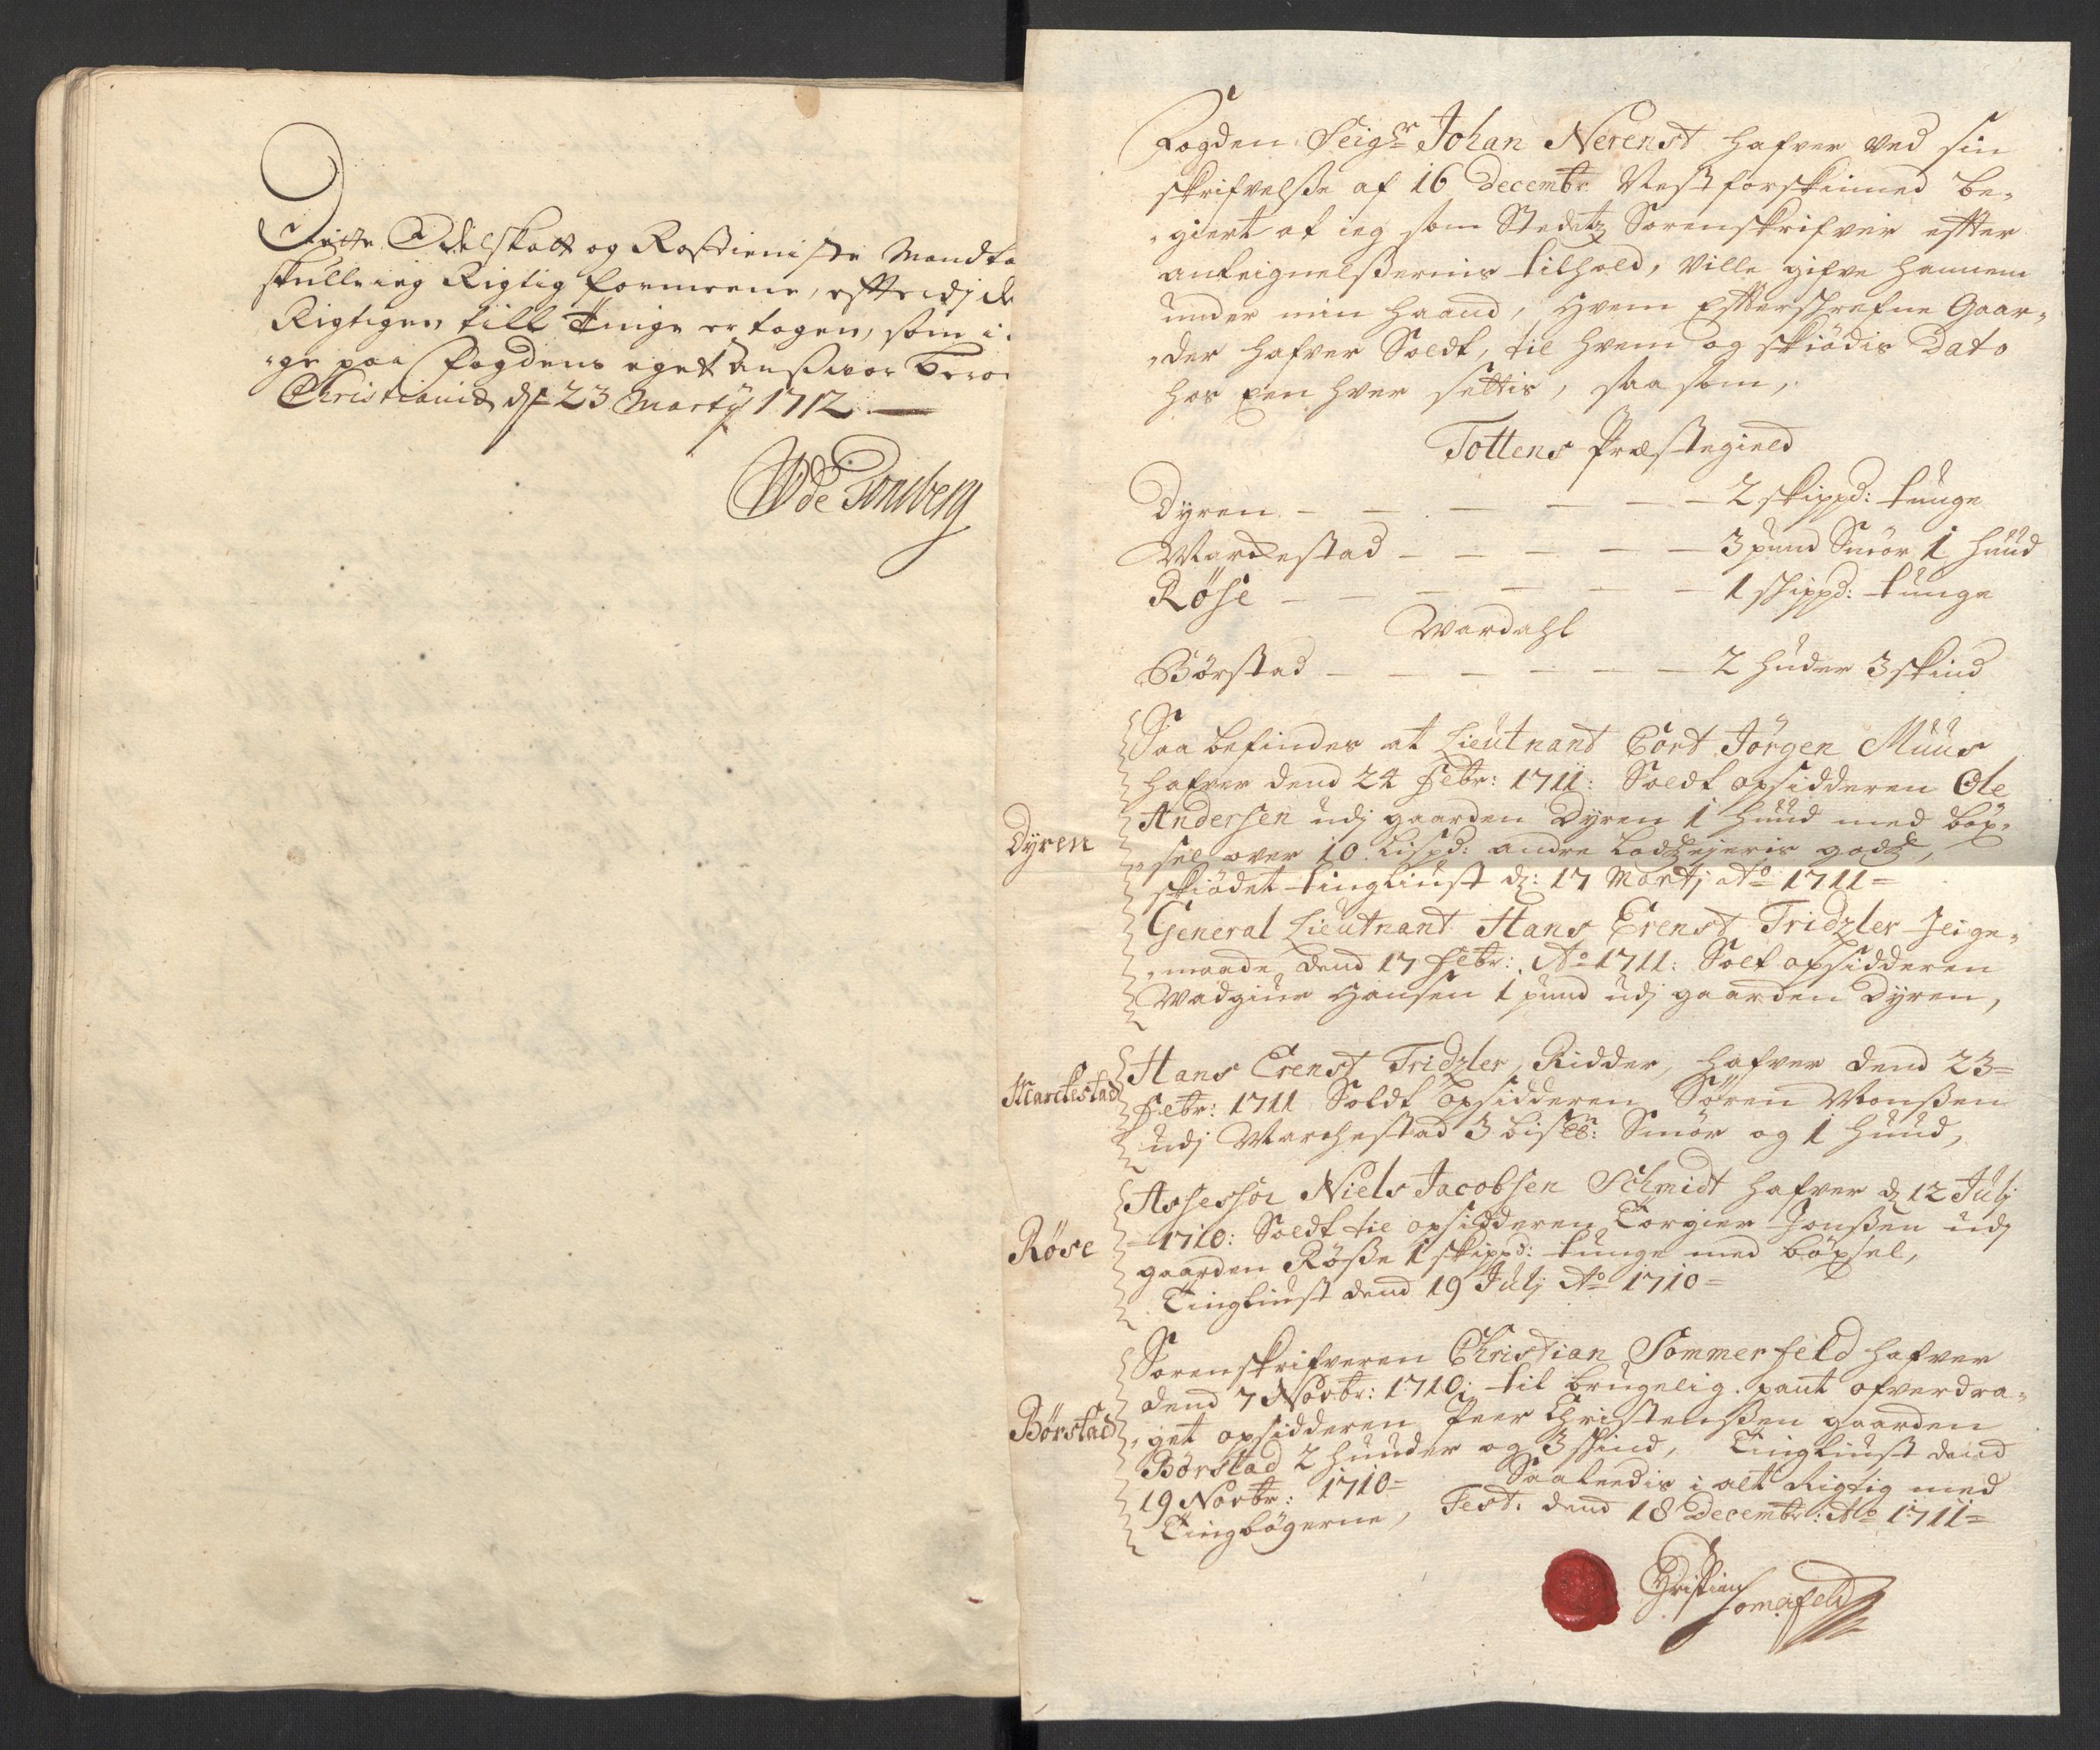 Dette Odelskatt og Rostieniste Mandta
skulle ieg Rigtig formeene, efftersom de
Rigtigen till Tinge er tagen, som i
-ge paa fogdens eget ansvar beroe
Christiania dend 23 Martij 1712
WdeTonsberg

Fogden Seigr Johan Nerenst hafver ved sin
skrifvelse af 16 Decembr. Nest forskinned be-
-giert at ieg som Stedetz Sorenskrifver effter
anteignelssernis tilhold, ville gifve hannem
under min haand, hvem Efftterskrefne Gaar-
-der hafver Soldt, til hvem og skiødis Dato
hos Een hver settis, saa som,
Tottens Præstegield
Dyren — — — — — 2 skippd: tunge
Marckestad — — — — — 3 pund Smør 1 huud
Røse — — — — — — 1 skippd: tunge
Wardahl
Børstad — — — — — — 2 huder 3 skind
Saa befindes at Lieutnant Cort Jørgen Muus
hafver dend 24 Febr: 1711: Soldt opsidderen Ole
Dyren
Andersen udj gaarden Dyren 1 huud med böx-
-sel over 10 Lispd: andre Lodzejeris godz,
skiødet tingliust d: 17 Martj Ao 1711=
General Lieutnant Hans Erenst Tridzler Lige-
-maade dend 17 Febr: Ao 1711: Solt opsidderen
Wadgiur Hansen 1 pund udj gaarden Dyren,
Marckestad
Hans Erenst Tridzler, Ridder, hafver dend 23=
Febr: 1711 Soldt opsidderen Søren Monssen
udj Marchestad 3 bismr: Smør og 1 huud,
Røse
Assessor Niels Jacobsen Schmidt hafver d 12 Julj
1710: Soldt til opsidderen Torgier Jonssen udj
gaarden Røsse 1 skippd: tunge med böxsel,
Tingliust dend 19 Julj Ao 1710=
Børstad
Sorenskrifveren Christian Sommerfeld hafver
dend 7 Novbr: 1710: til brugelig pant ofverdra-
-get opsidderen Peer Christenssen gaarden
Børstad 2 huuder og 3 skind, Tingliust dend
19 Novbr: 1710= Saaledis i alt Rigtig med
Tingbøgerne, Test. dend 18 Decembr: Ao 1711=
Christian
Somerfeld